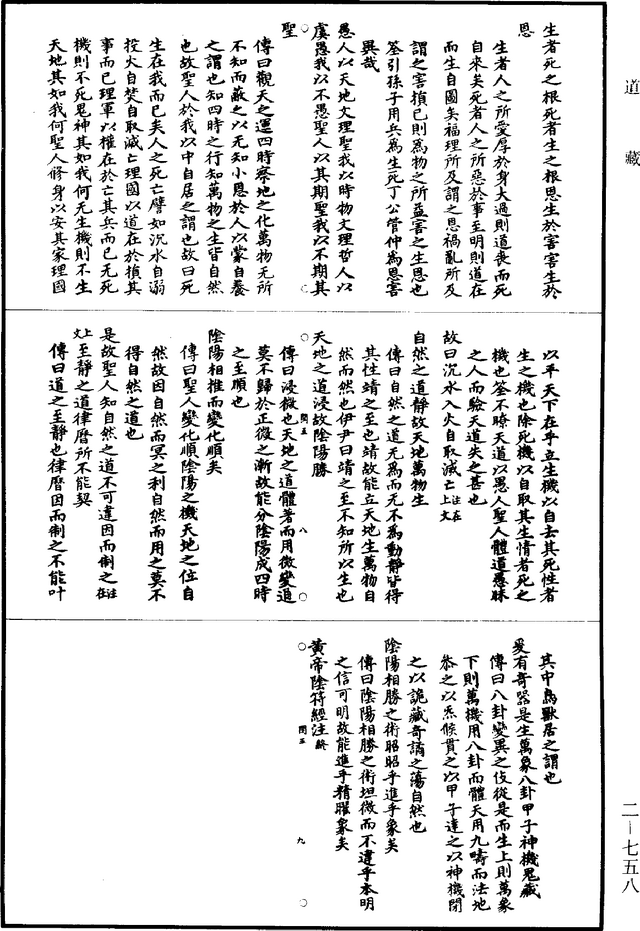 道藏
生者死之根死者生之根恩生於害害生於
恩
生者人之所愛厚於身大過則道喪而死
自來矣死者人之所惡於事至明則道在
而生自圖矣福理所及謂之恩禍亂所及
謂之害損已則為物之所益害之生恩也
筌引孫子用兵為生死丁公管仲為恩害
異哉
愚人以天地文理聖我以時物文理哲人以
虞愚我以不愚聖人以其期聖我以不期其
聖
傳曰觀天之運四時察地之化萬物无所
不知而蔽之以无知小恩於人以蒙自養
之謂也知四時之行知萬物之生皆自然
也故聖人於我以中自居之謂也故曰死
生在我而已矣人之死亡譬如沉水自溺
投火自焚自取滅亡理國以道在於損其
事而已理軍以權在於亡其兵而已无死
機則不死鬼神其如我何无生機則不生
天地其如我何聖人修身以安其家理國
以平天下在乎立生機以自去其死性者
生之機也除死機以自取其生情者死之
機也筌不瞭天道以愚人聖人體道愚昧
之人而驗天道失之甚也
故曰沉水入火自取滅亡註在上文
自然之道靜故天地萬物生
傳曰自然之道无為而无不為動靜皆得
其性靖之至也靖故能立天地生萬物自
然而然也伊尹曰靖之至不知所以生也
天地之道浸故陰陽勝
傳曰浸微也天地之道體著而用微變通
閏五 八
莫不歸於正微之漸故能分陰陽成四時
之至順也
陰陽相推而變化順矣
傳曰聖人變化順陰陽之機天地之位自
然故因自然而冥之利自然而用之莫不
得自然之道也
是故聖人知自然之道不可違因而制之註在
上文至靜之道律曆所不能契
傳曰道之至靜也律曆因而制之不能叶
其中鳥獸居之謂也
爰有奇器是生萬象八卦甲子神機鬼藏
傳曰八卦變異之伎從是而生上則萬象
下則萬機用八卦而體天用九疇而法地
恭之以炁候貫之以甲子達之以神機閉
之以詭藏奇譎之蕩自然也
陰陽相勝之術昭昭乎進乎象矣
傳曰陰陽相勝之術坦微而不違乎本明
之信可明故能進乎精曜象矣
黃帝陰符經注終
閏五 九
二—七五八